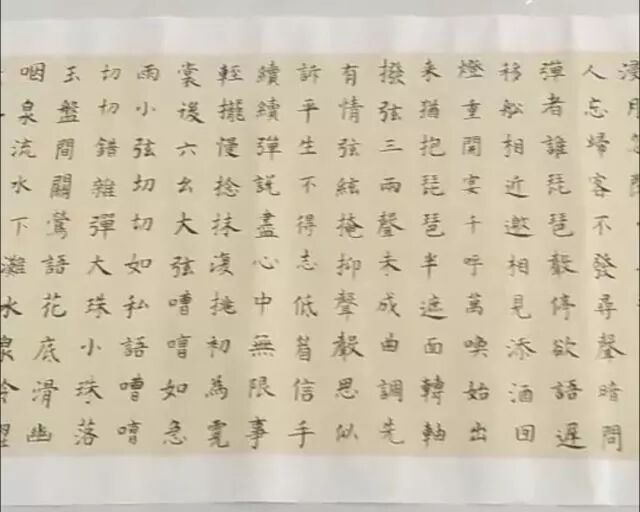 浸月
人忘歸客不發尋聲暗問
彈者誰琵琶聲停欲語遲
移船相近邀相見添酒回
燈重開宴千呼萬喚始出
来猶抱琵琶半遮面轉軸
撥弦三兩聲未成曲調先
有情弦絃掩抑聲聲思似
訴平生不得志低眉信手
續續彈說盡心中無限事
輕攏慢捻抹復挑初為霓
裳後六幺大弦嘈嘈如急
雨小弦切切如私語嘈嘈
切切錯雜彈大珠小珠落
玉盤間關鶯語花底滑幽
咽泉流水下灘水泉冷